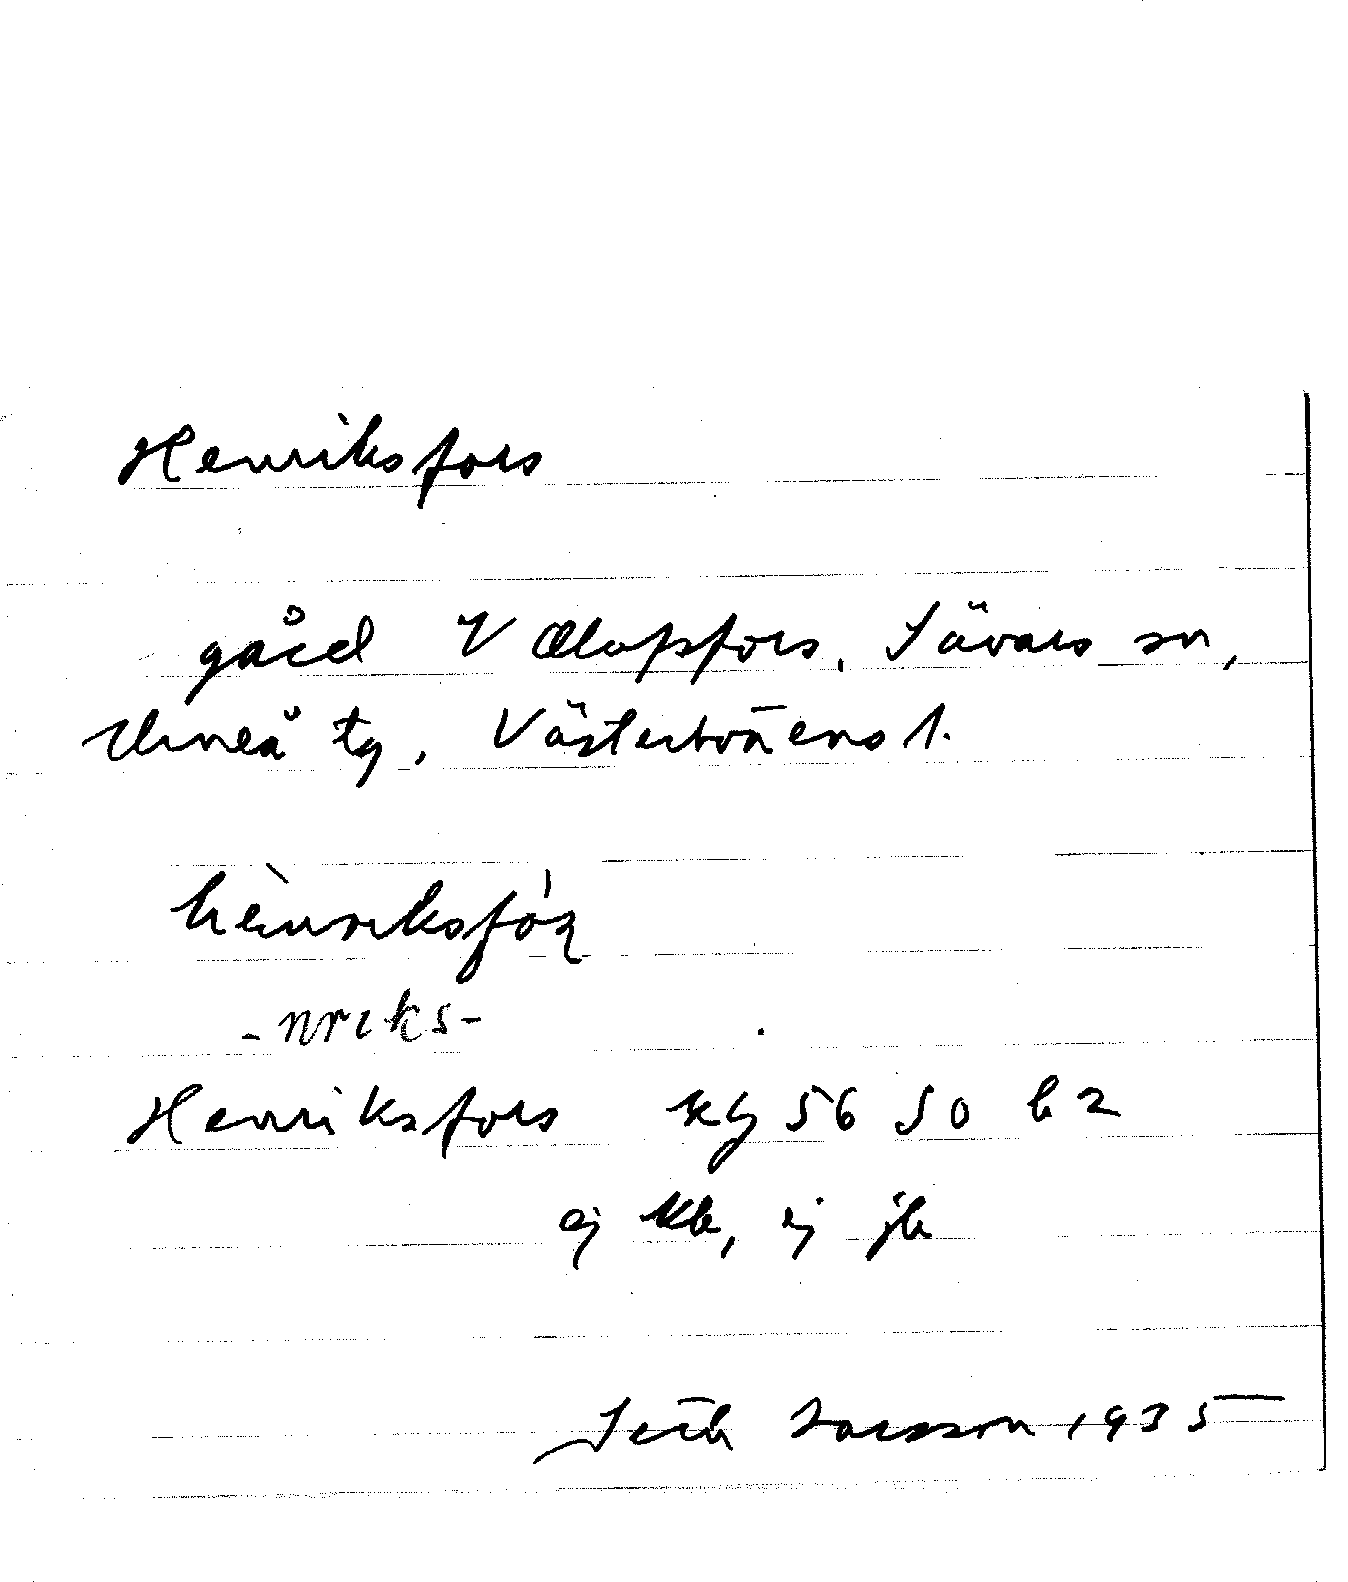 Henriksfors
gård V Olofsfors, Sävars sn,
Umeå tg, Västerbottens l.
hènriksfóʂ
-nriks-
Henriksfors kg 56 SO b 2
ej kb, ej jb
Seth Larsson 1935